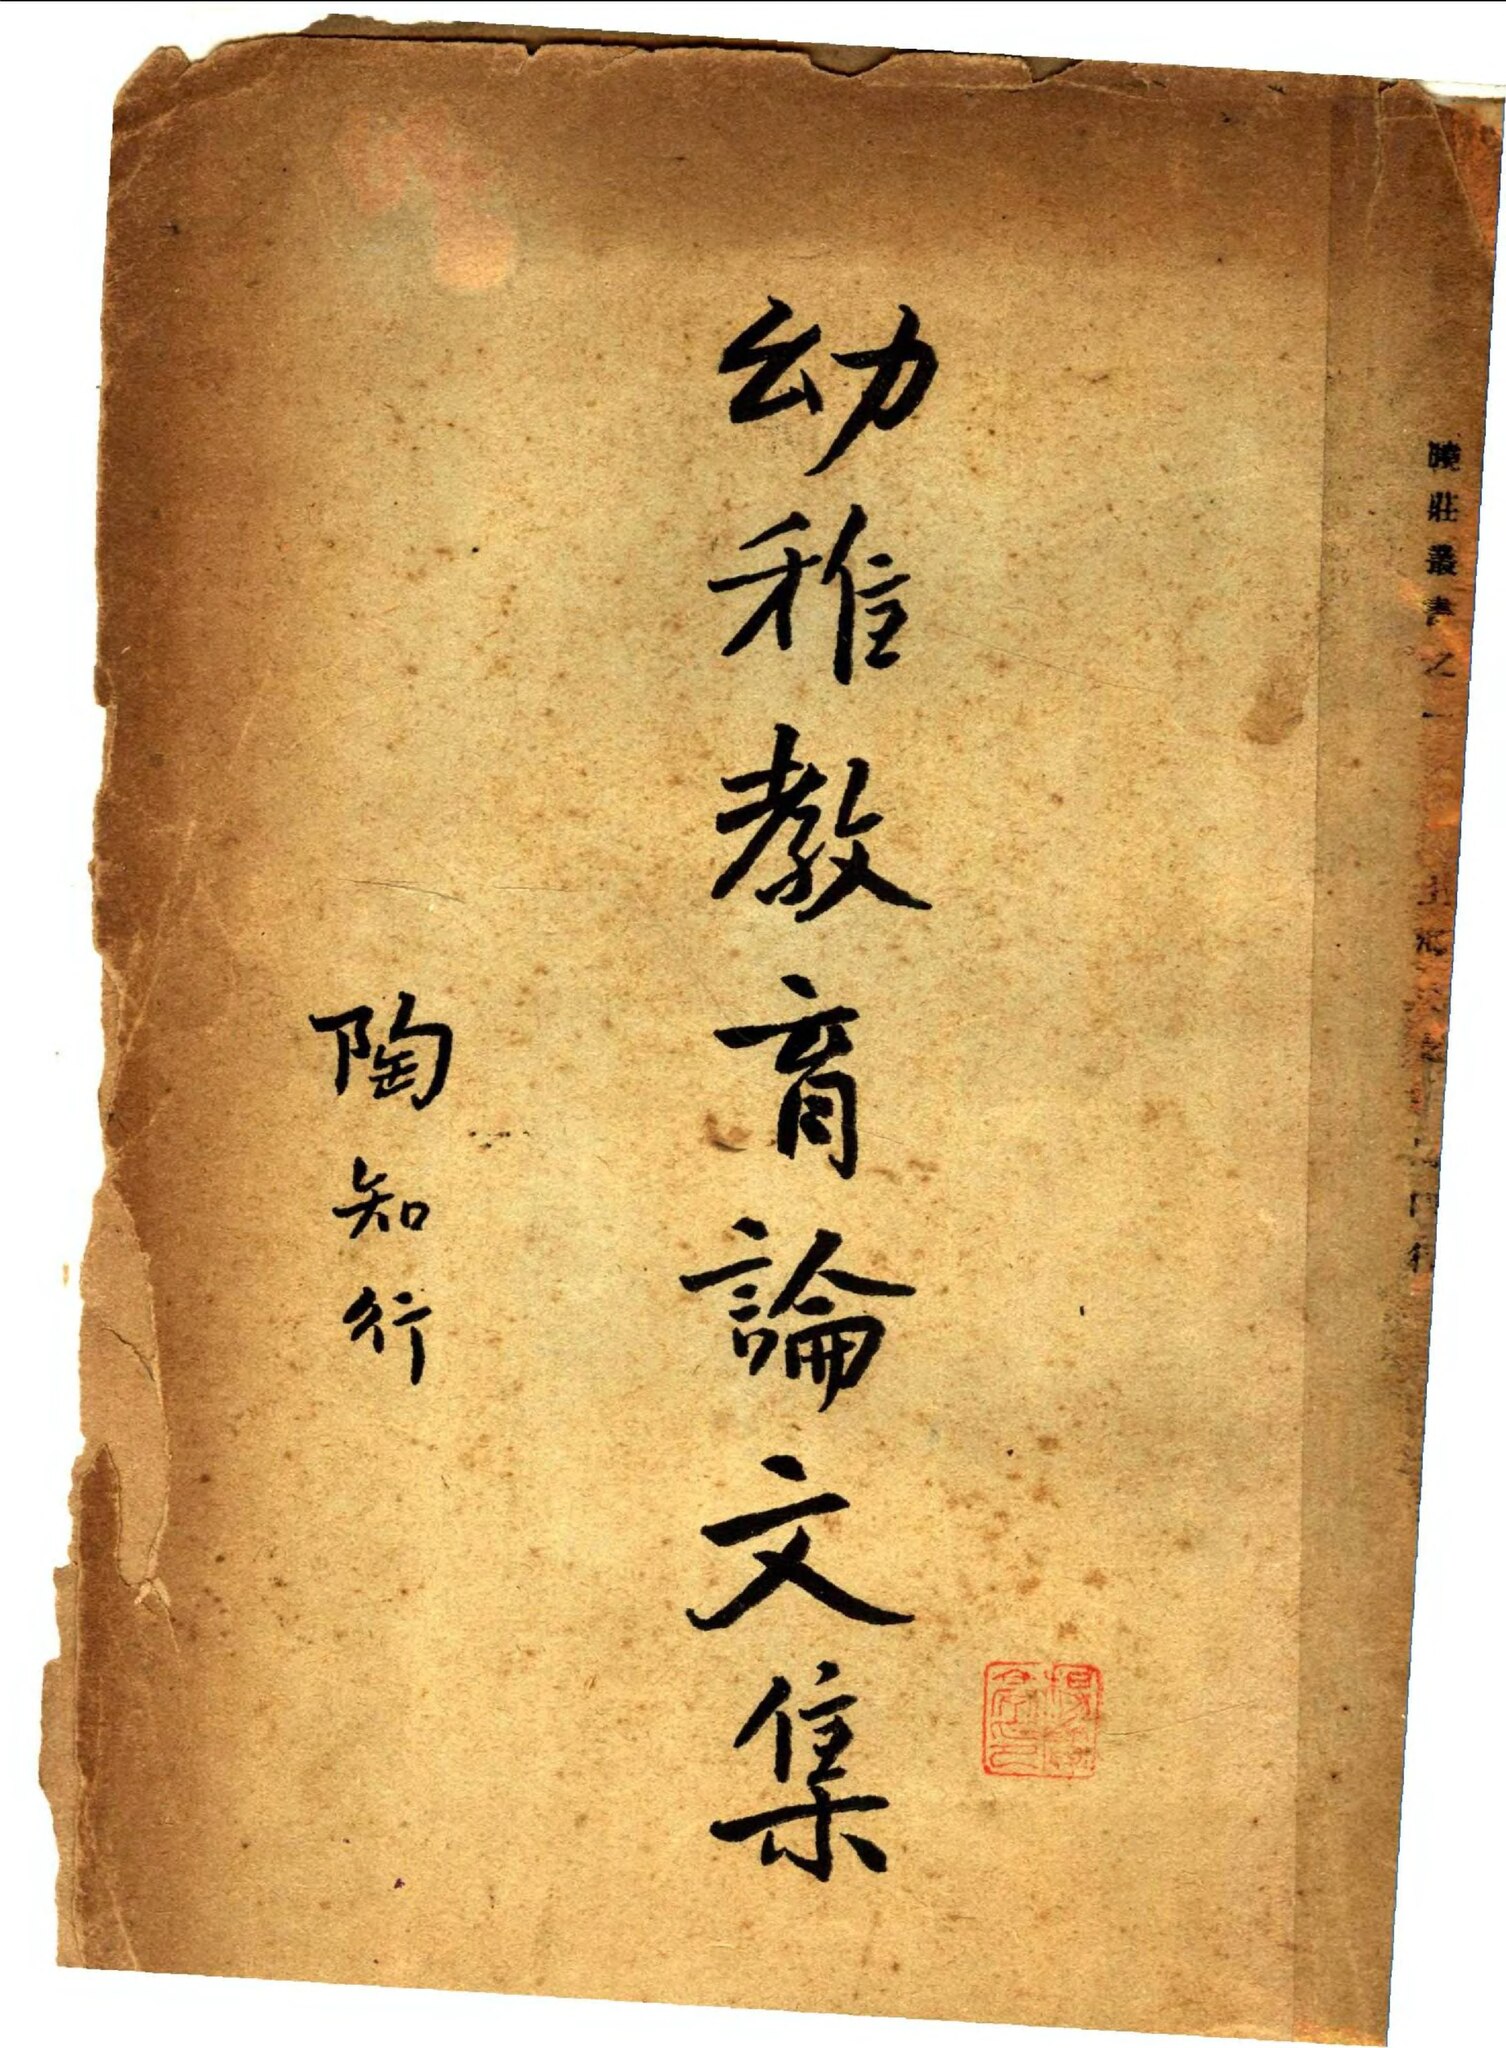 曉莊叢書之一
幼稚教育論文集
陶知行